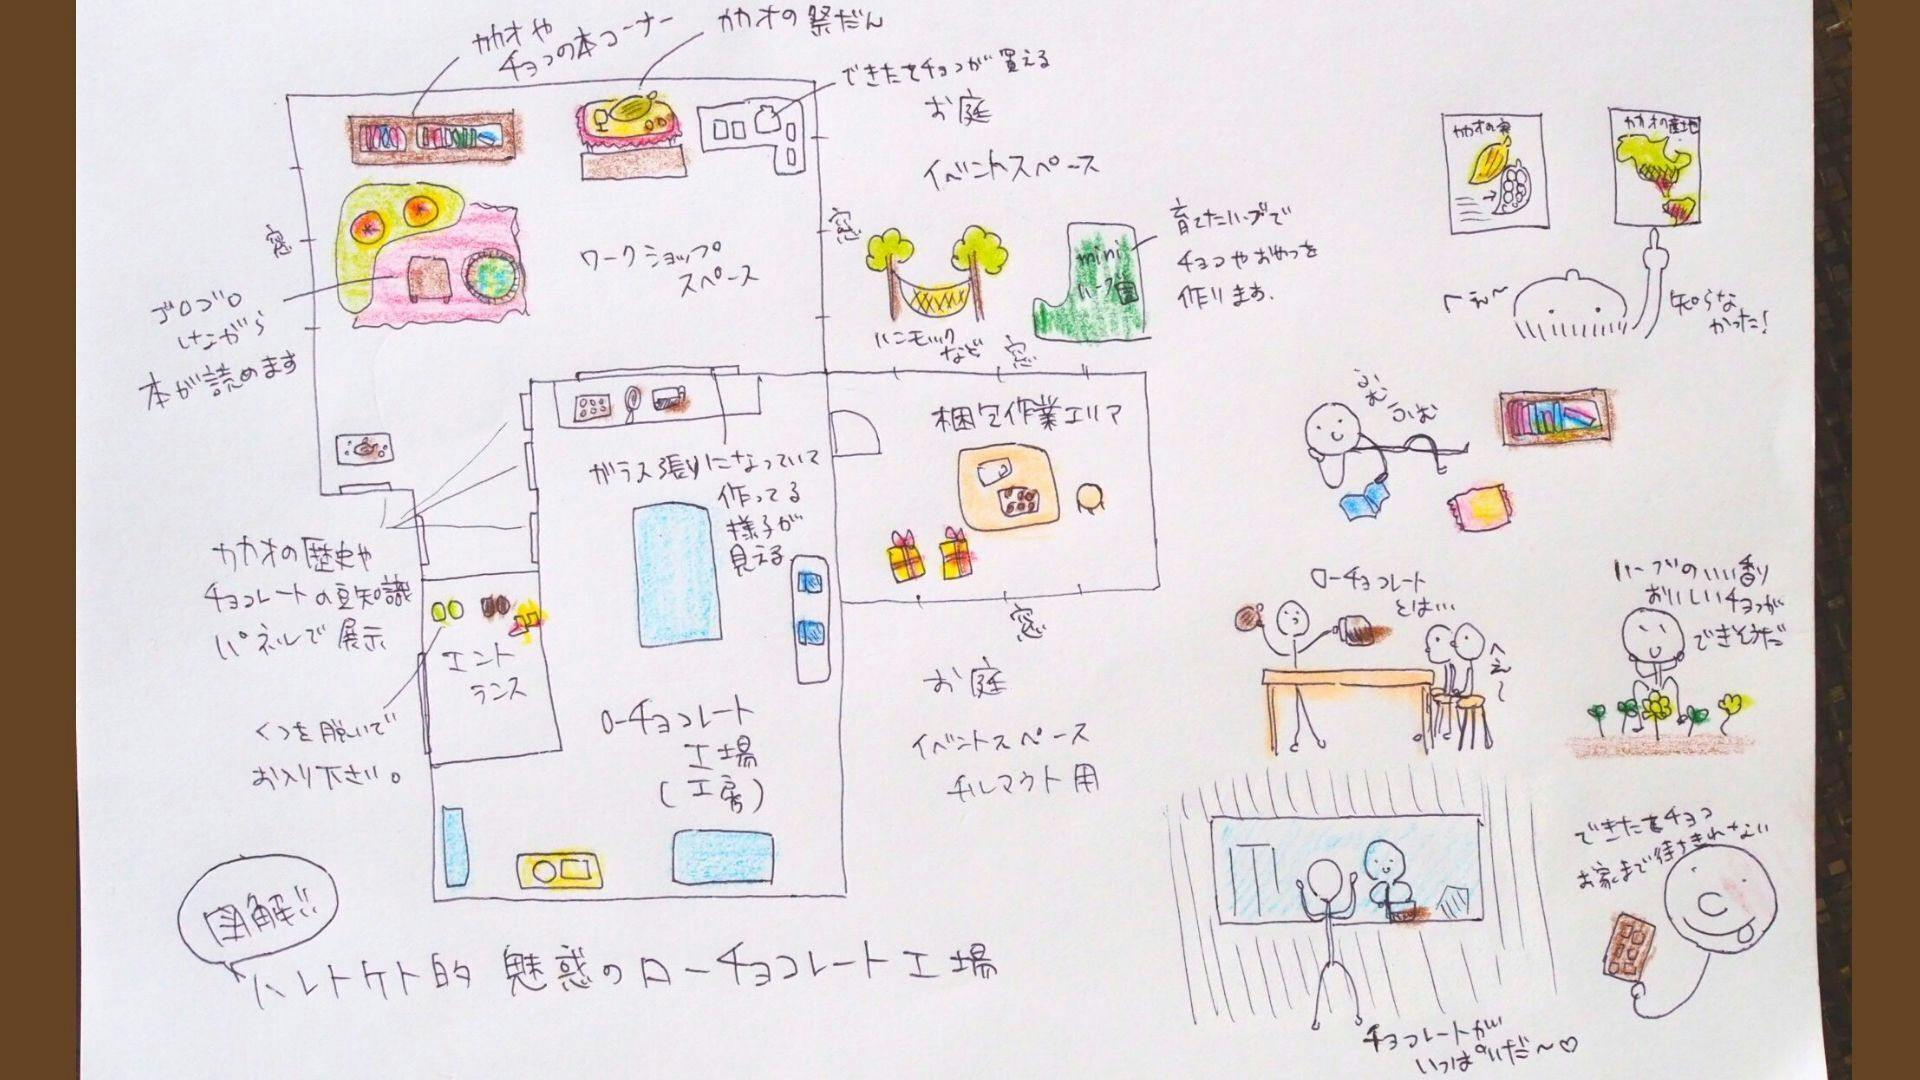 カカオや
チョコの本コーナー
カカオの祭だん
できたてチョコが買える
お庭
イベントスペース
窓
窓
ワークショップ
スペース
ゴロゴロ
しながら
本が読めます
ハンモック
など
mini
ハーブ園
育てたハーブで
チョコやおやつを
作ります.
窓
梱包作業エリア
ガラス張りになっていて
作ってる
様子が
見える
カカオの歴史や
チョコレートの豆知識
パネルで展示
エント
ランス
くつを脱いで
お入り下さい。
ローチョコレート
工場
(工房)
窓
お庭
イベントスペース
チルアウト用
図解!!
ハレトケト的 魅惑のローチョコレート工場
カカオの実
カカオの産地
へぇ〜
知らな
かった!
ふむ
ふむ
ローチョコレート
とは…
へぇ〜
ハーブのいい香り
おいしいチョコが
できそうだ
できたてチョコ
お家まで待ちきれない
チョコレートが
いっぱいだ〜♡